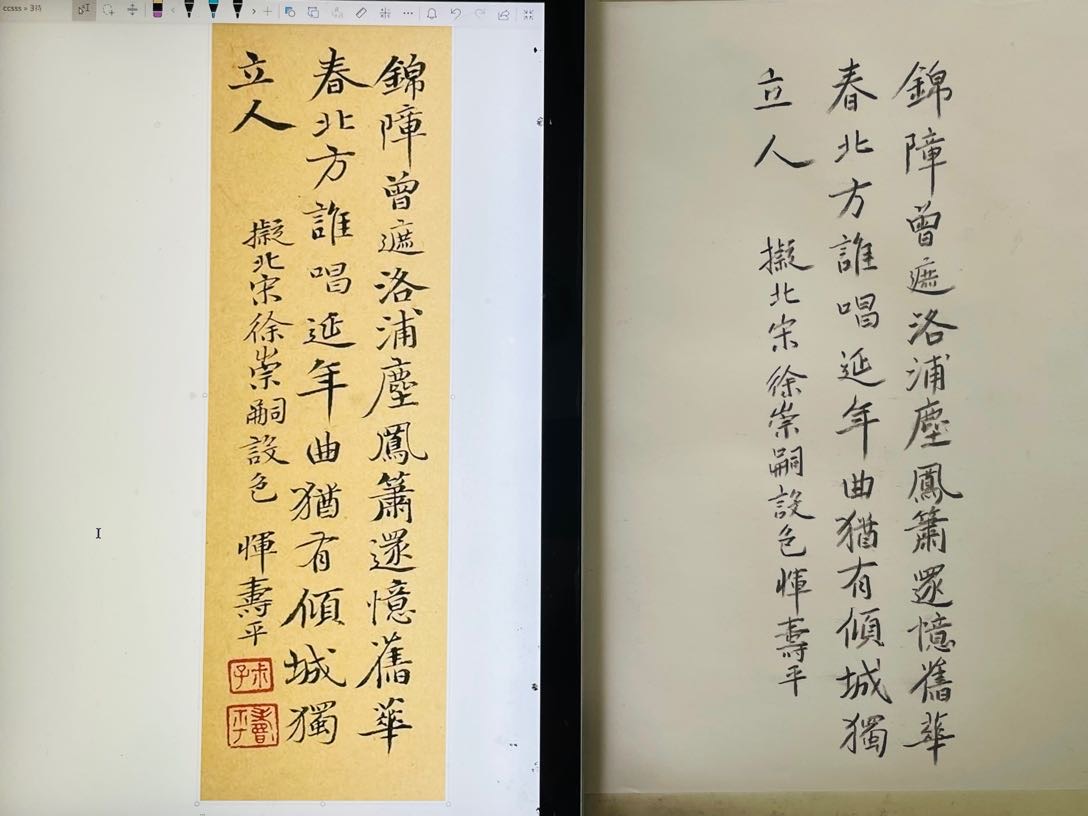 ccsss » 3待
錦障曾遮洛浦塵鳳簫還憶舊華
春北方誰唱延年曲猶有傾城獨
立人
擬北宋徐崇嗣設色 惲壽平
錦障曾遮洛浦塵鳳簫還憶舊華
春北方誰唱延年曲猶有傾城獨
立人
擬北宋徐崇嗣設色惲壽平